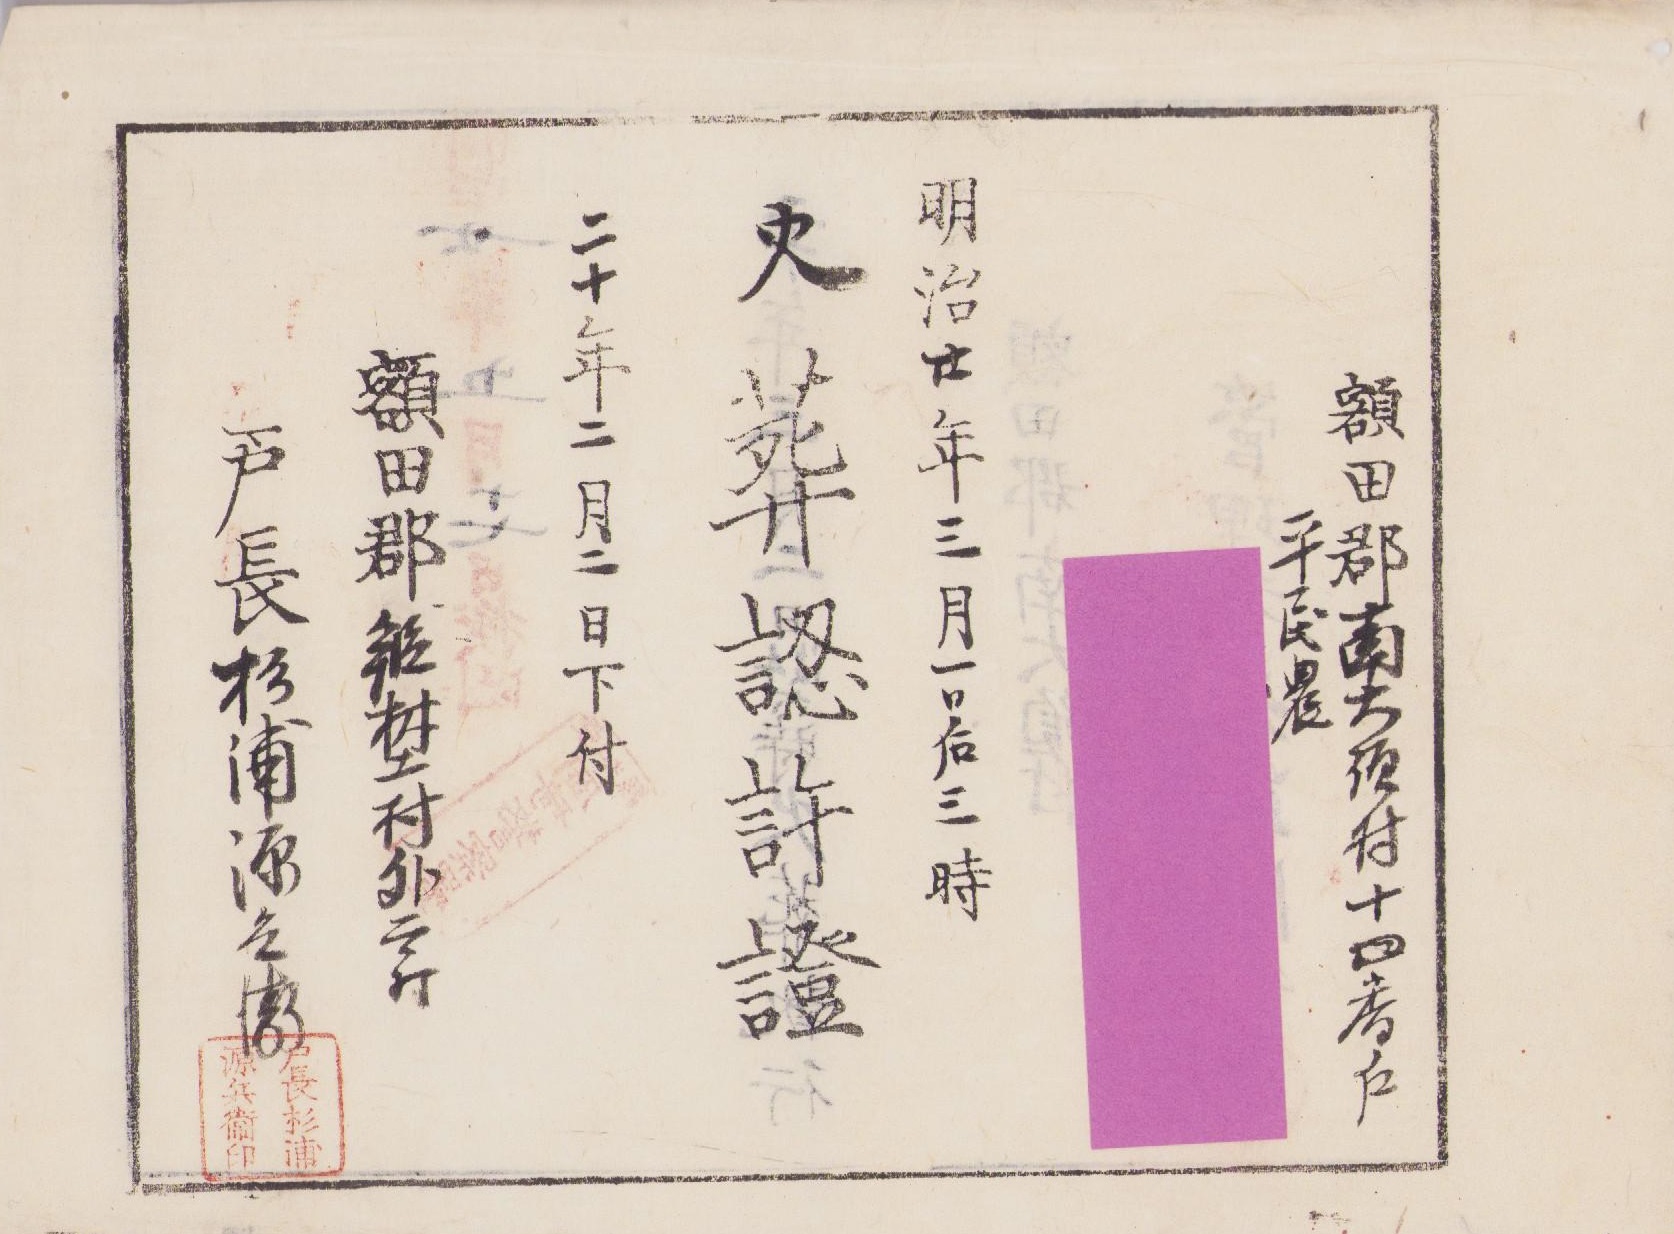 額田郡南大須村十四番戸
平民農
明治廿年三月一日后三時
葬認許證
二十年二月二日下付
額田郡 村外
戸長杉浦源兵衞
戸長杉浦
源兵衞印